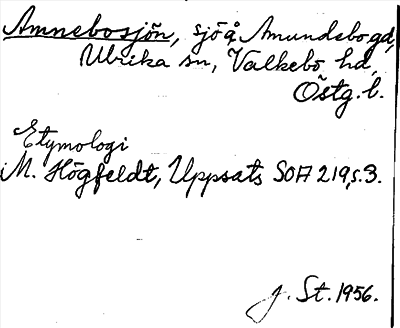 Amnebosjön, sjö å Amundebo gd,
Ulrika sn, Valkebo hd,
Östg. l.
Etymologi
M. Högfeldt, Uppsats SOA 219, s. 3.
J. St. 1956.